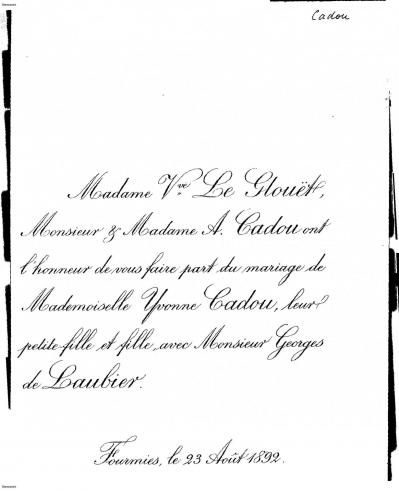 Cadou
Madame Vve Le Glouët,
Monsieur & Madame A. Cadou ont
l'honneur de vous faire part du mariage de
Mademoiselle Yvonne Cadou, leur
petite-fille et fille, avec Monsieur Georges
de Laubier.
Fourmies, le 23 Août 1892.